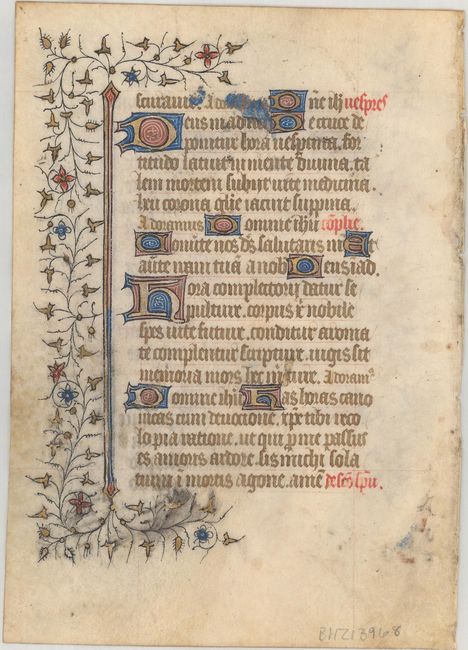 Deus in ad
e cruce de
ponitur hora vespertina. for
titudo latuit in mente divina. ta
lem mortem subiit vite medicina.
heu corona glie iacuit supina.
Adoramus Domine ihu cōplie.
Converte nos ds salutaris nr Et
averte iram tuā a nob Deus i ad.
Hora completorii datur se
pulture. corpus xi nobile
spes vite future. conditur aroma
te complentur scripture. iugis sit
memoria mors hec in cure. Adoramꝰ
Domine ihu Has horas cano
nicas cum devocione. xpe tibi reco
lo pia ratione. ut qui p me passus
es amoris ardore. sis michi sola
tium ī mortis agone. amē de scō spu.
BHZ13968